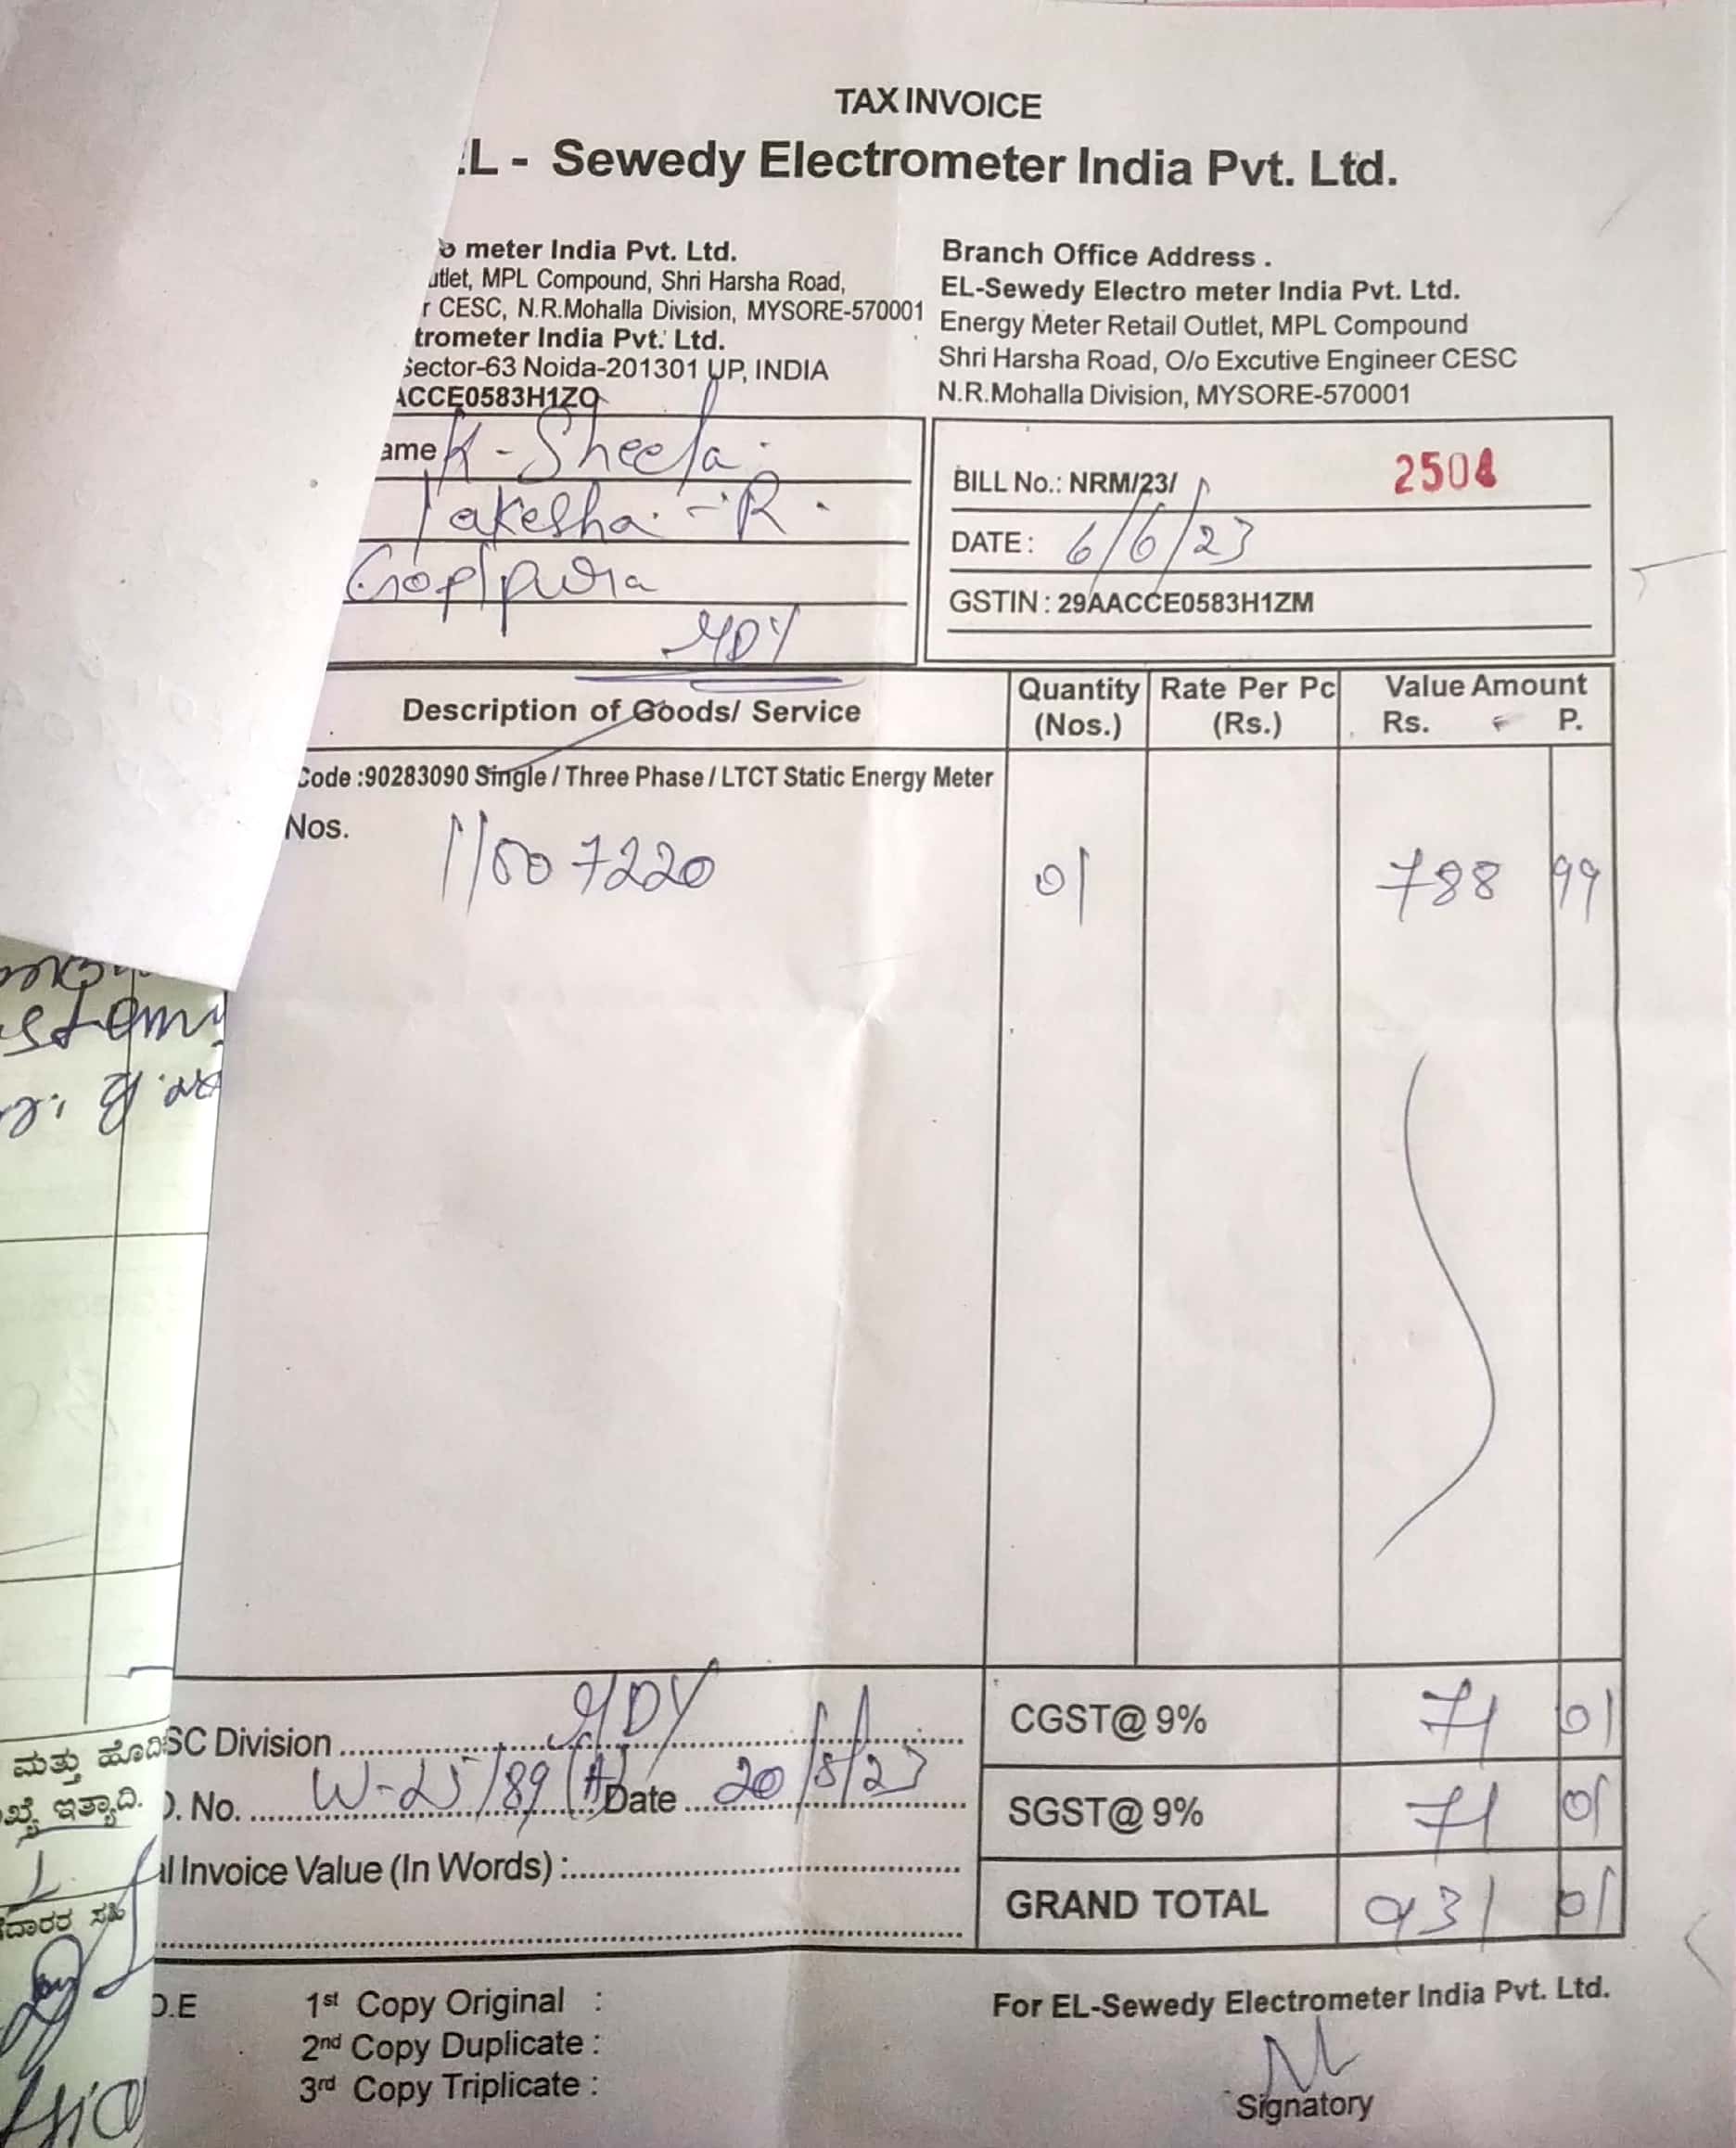 TAX INVOICE
EL - Sewedy Electrometer India Pvt. Ltd.
o meter India Pvt. Ltd.
utlet, MPL Compound, Shri Harsha Road,
r CESC, N.R.Mohalla Division, MYSORE-570001
trometer India Pvt. Ltd.
Sector-63 Noida-201301 UP, INDIA
ACCE0583H1ZO
Branch Office Address .
EL-Sewedy Electro meter India Pvt. Ltd.
Energy Meter Retail Outlet, MPL Compound
Shri Harsha Road, O/o Excutive Engineer CESC
N.R.Mohalla Division, MYSORE-570001
ame K - Sheela
akesha - R
MDY
BILL No.: NRM/23/ 2504
DATE : 6/6/23
GSTIN : 29AACCE0583H1ZM
Description of Goods/ Service
Quantity (Nos.)
Rate Per Pc (Rs.)
Value Amount
Rs. P.
Code :90283090 Single / Three Phase / LTCT Static Energy Meter
Nos. 11007220 01 788 99
SC Division MDY
. No. Date
l Invoice Value (In Words) :
CGST@ 9% 71 01
SGST@ 9% 71 01
GRAND TOTAL 931 01
ಮತ್ತು ಹೊದಿ
ಇತ್ಯಾದಿ.
ದಾರರ ಸಹಿ
O.E
1st Copy Original :
2nd Copy Duplicate :
3rd Copy Triplicate :
For EL-Sewedy Electrometer India Pvt. Ltd.
Signatory